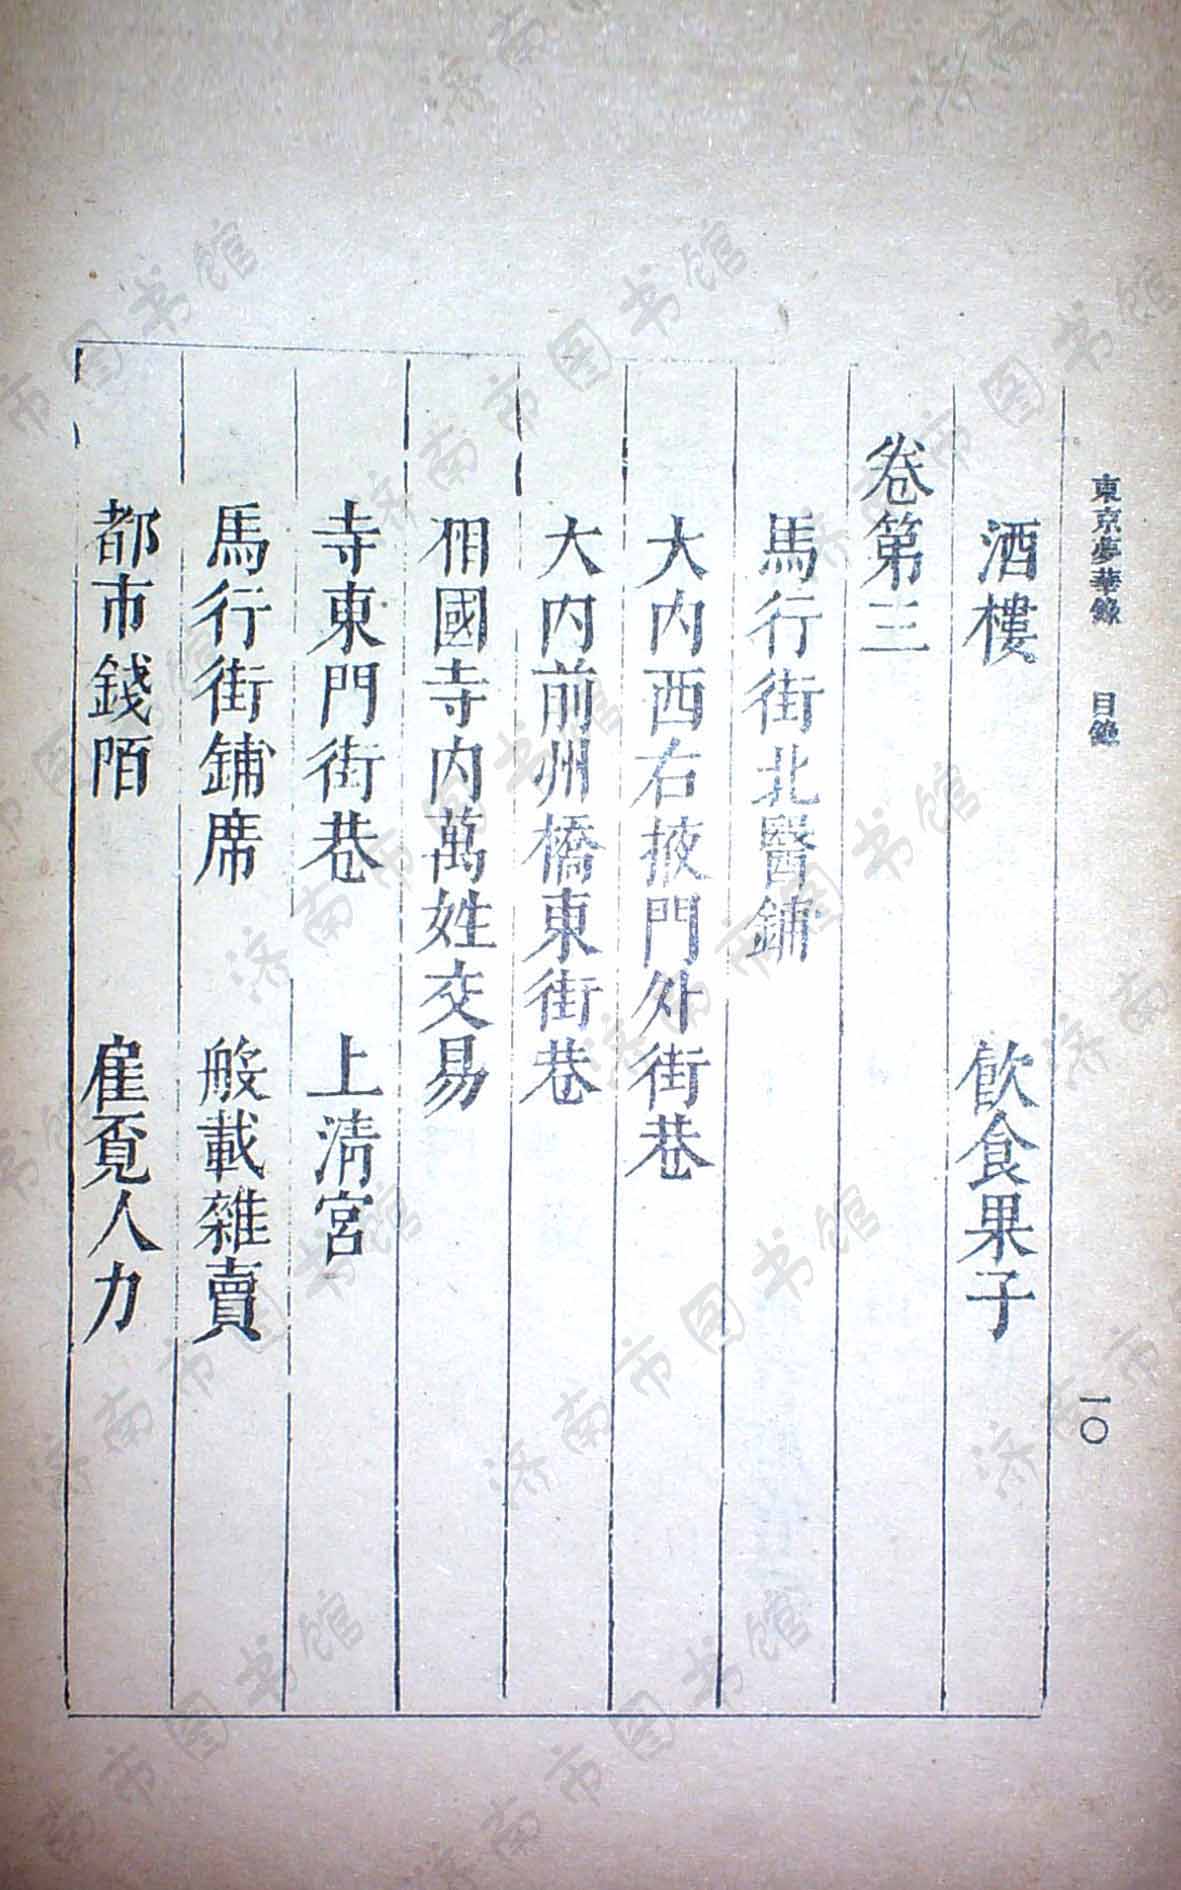 東京夢華錄 目錄 一〇
酒樓 飲食果子
卷第三
馬行街北醫鋪
大内西右掖門外街巷
大内前州橋東街巷
相國寺内萬姓交易
寺東門街巷 上清宮
馬行街鋪席 般載雜賣
都市錢陌 雇覔人力
济南市图书馆